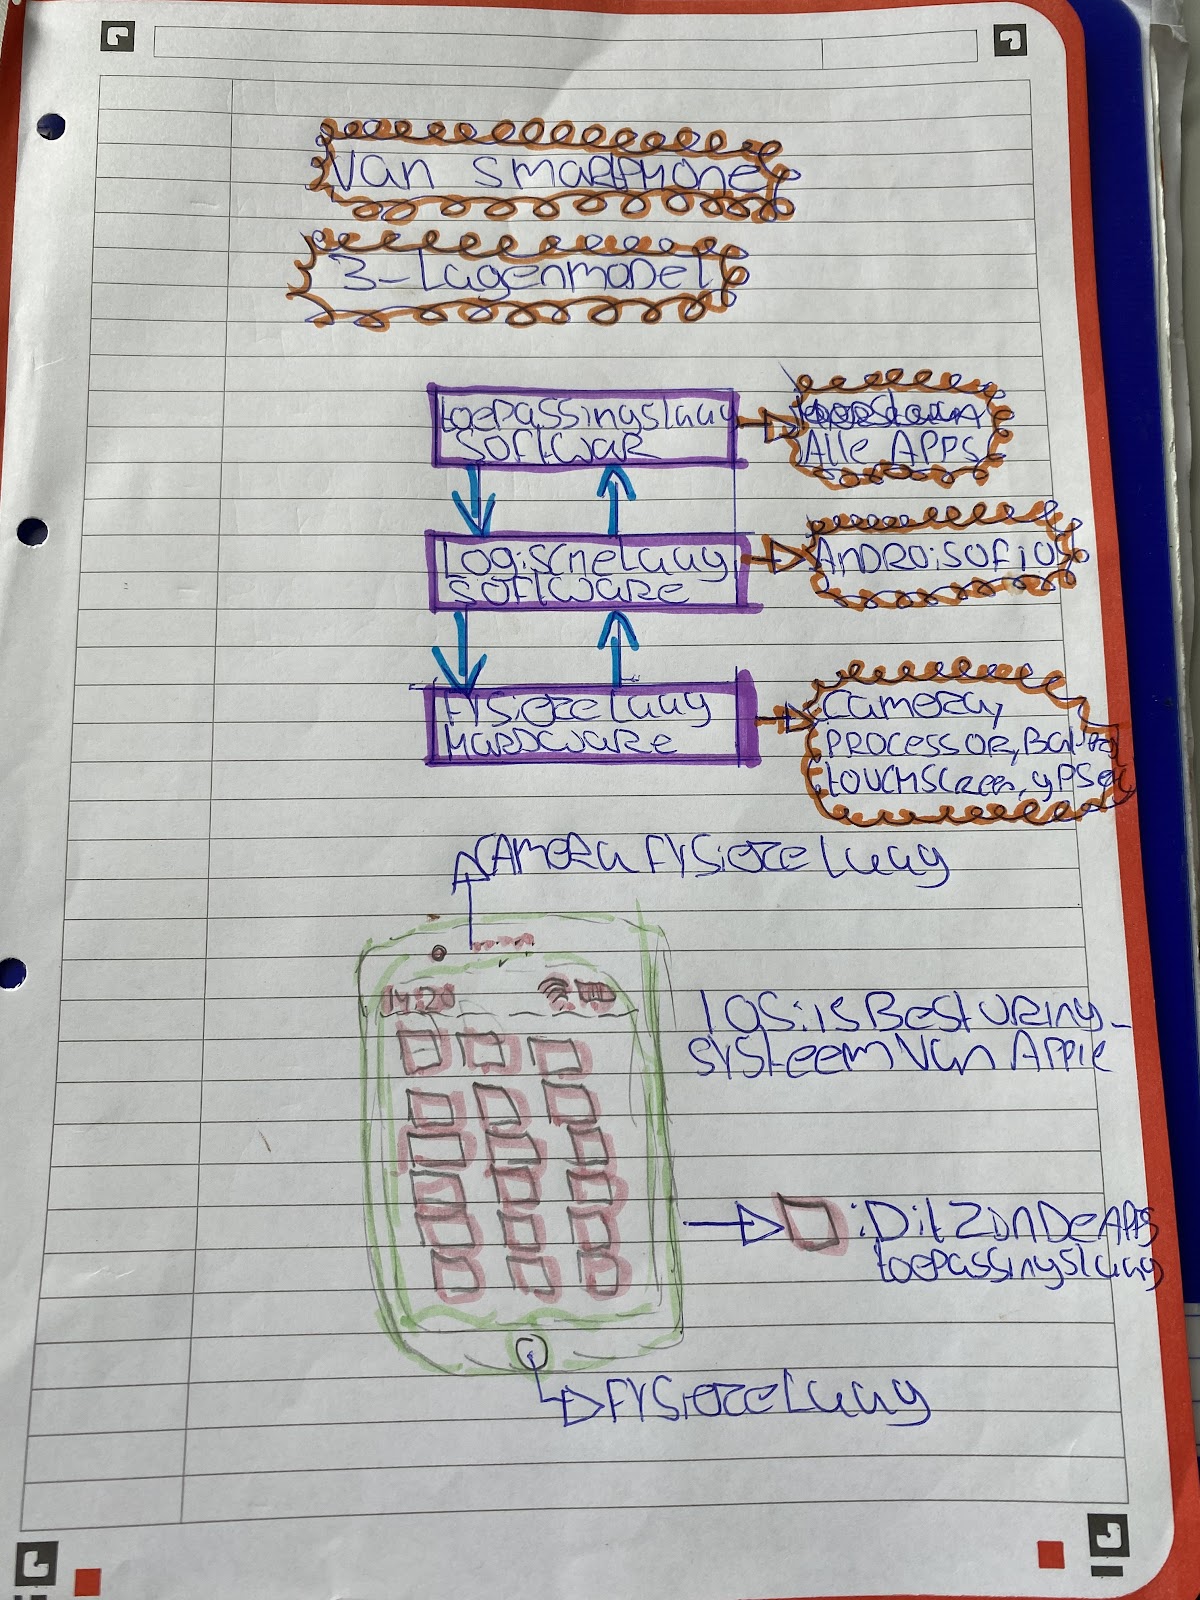 Van SMARTPHONE
3-Lagenmodel
toepassingslaag
SOFTWAR
Alle APPS
Logische Laag
SOFTWARE
ANDROiSOFiOS
FYSieze Laag
HARDWARE
camera,
PROCESSOR,
touchscreen, GPS
CAMERA FYSieze Laag
14:20
IOS: is Besturing-
systeem Van Apple
: Dit Zijn De APPS
toepassingslaag
FYSieze Laag